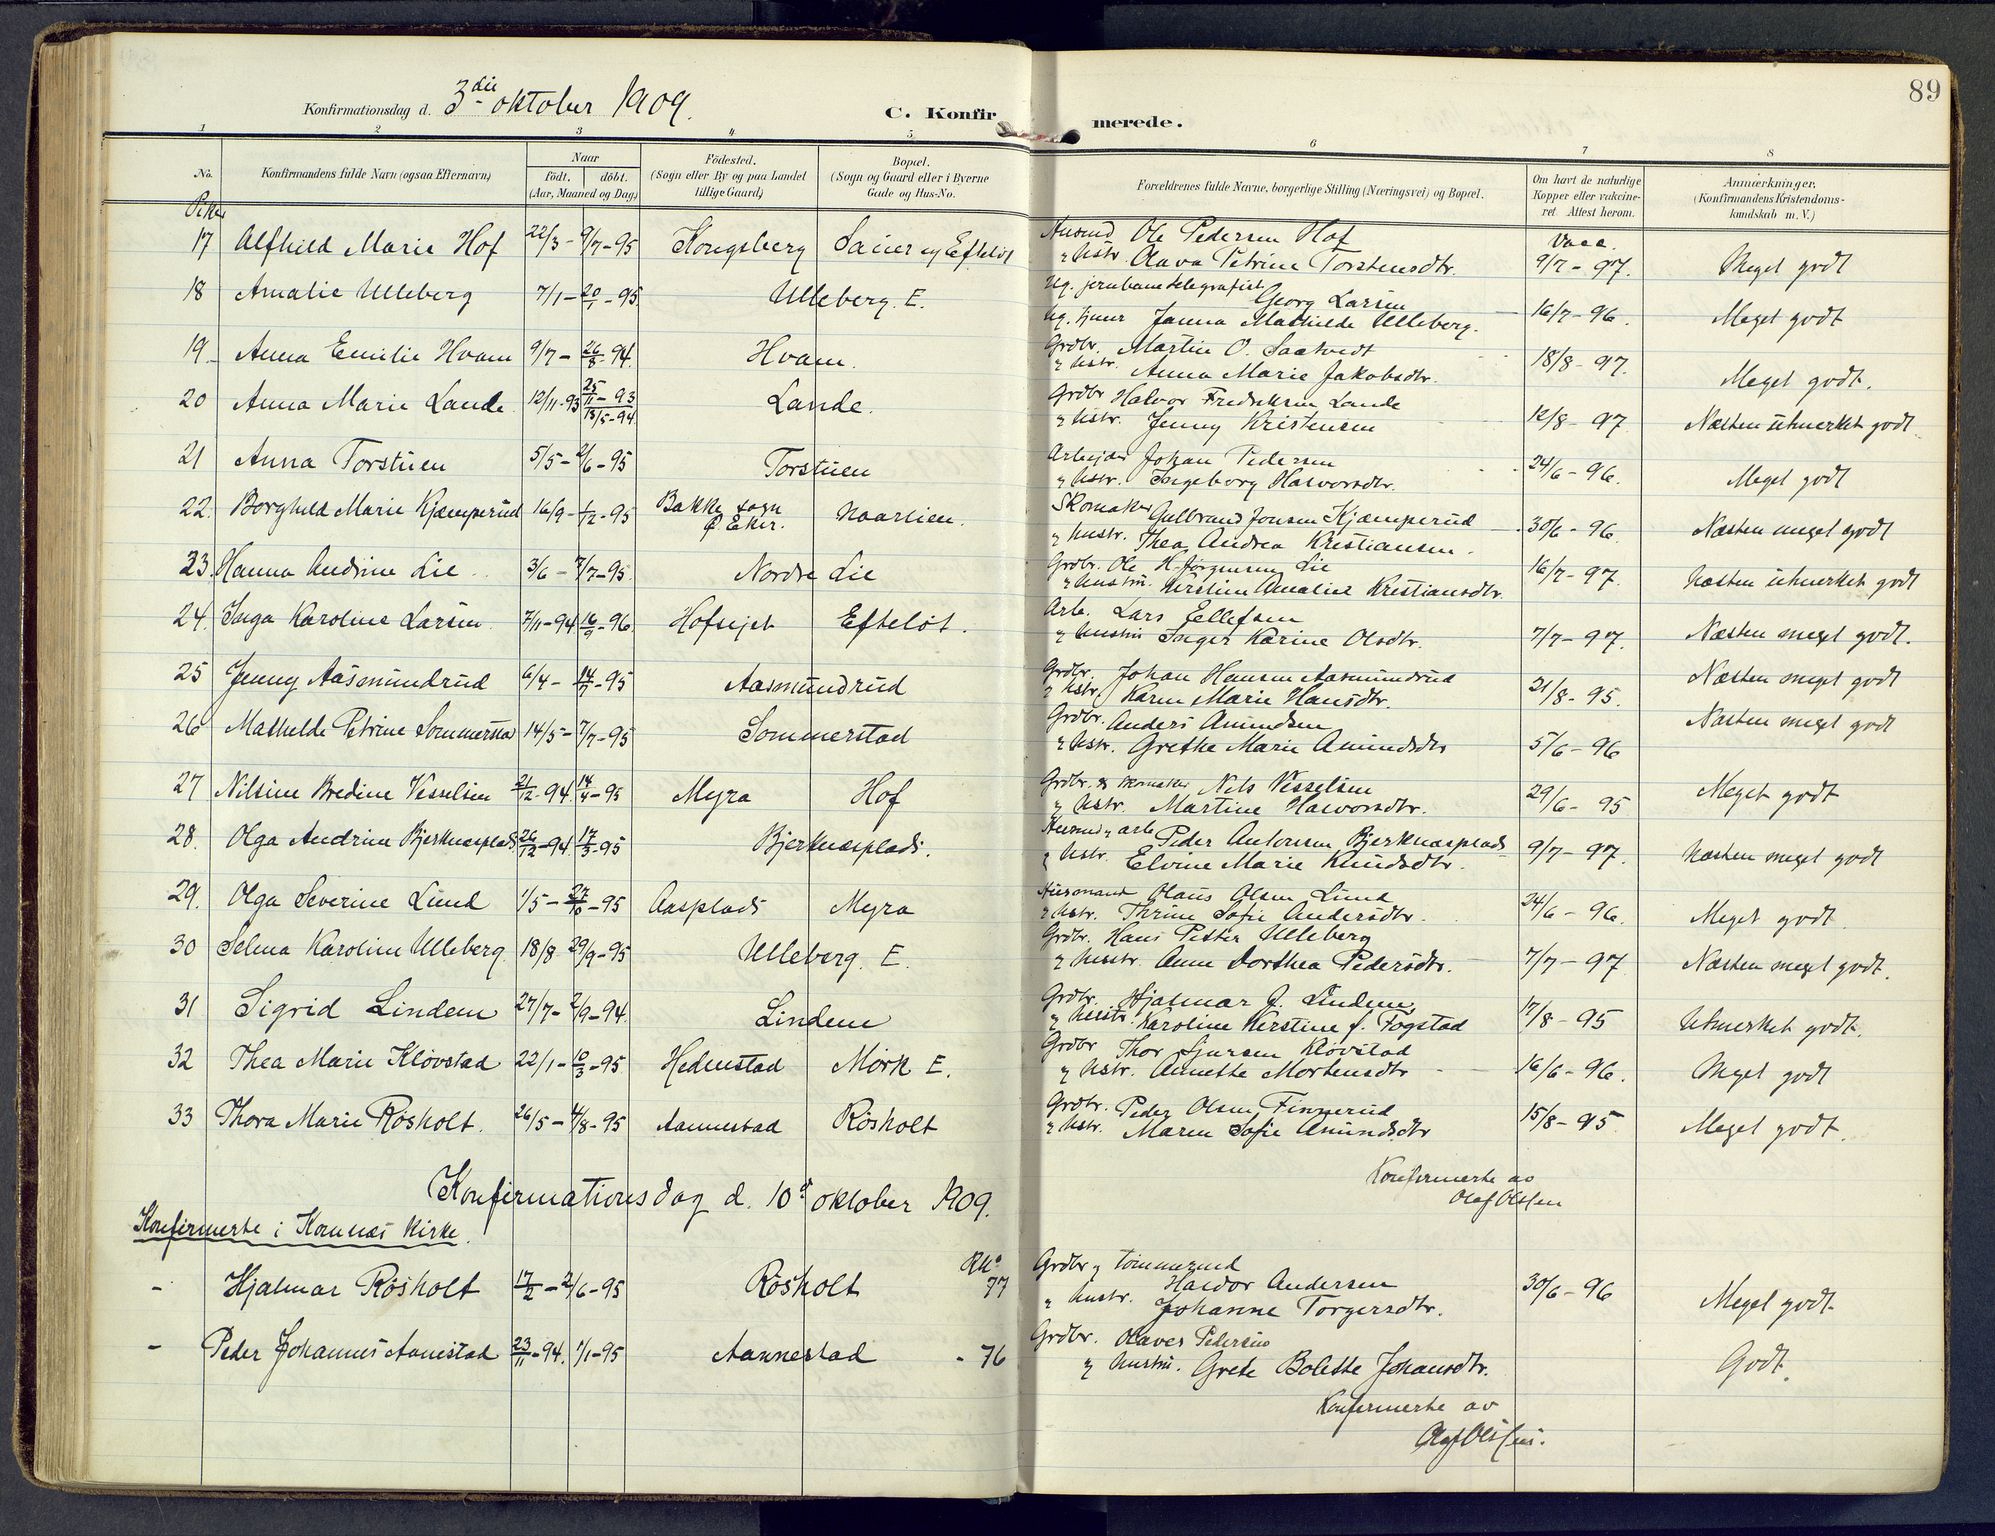 89
Konfirmationsdag d. 3die oktober 1909.
C. Konfirmerede.
1 2 3 4 5 6 7 8
No. Konfirmandens fulde Navn (ogsaa Efternavn) Naar födt. döbt. (Aar, Maaned og Dag) Födested. (Sogn eller By og paa Landet tillige Gaard) Bopæl. (Sogn og Gaard eller i Byerne Gade og Hus-No. Forældrenes fulde Navne, borgerlige Stilling (Næringsvei) og Bopæl. Om havt de naturlige Kopper eller vakcineret. Attest herom. Anmærkninger. (Konfirmandens Kristendomskundskab m. V.)
Piker
17 Alfhild Marie Hof 22/3 - 9/7 - 95 Kongsberg Sauer og Efteløt Husmd Ole Pedersen Hof Vacc.
" hstr. Olava Petrine Torstensdtr. 9/7 - 97. Meget godt
18 Amalie Ulleberg 7/1 - 20/1 - 95 Ulleberg. E. Ug. jernbanetelegrafist Georg Larsen
Ug. kone Janna Mathilde Ulleberg. 16/7 - 96. Meget godt
19. Anna Emilie Hvam 9/7 - 26/8 - 94. Hvam. Grdbr. Martin O. Saatvedt
" hstr. Anna Marie Jakobsdtr. 18/8 - 97. Meget godt.
20 Anna Marie Lande 12/11 - 93 25/11 - 93 13/5 - 94 Lande. Grdbr Halvor Fredriksen Lande
" hstr. Jenny Kristensen 12/8 - 97 Næsten utmerket godt
21 Anna Torstuen 5/5 - 2/6 - 95 Torstuen Arbejder Johan Pedersen
" hstr. Ingeborg Halvorsdtr. 24/6 - 96. Meget godt
22. Borghild Marie Kjæmperud 16/9 - 1/12 - 95 Bakke sogn Ø. Eker. Haarlien. Skomaker Gulbrand Jonsen Kjæmperud
" hustr. Thea Andrea Kristiansen. 30/6 - 96. Næsten meget godt
23. Hanna Andrine Lie 3/6 - 7/7 - 95. Nordre Lie Grdbr. Ole H. Jørgensen Lie
" hustru. Kirstine Amalie Kristiansdtr. 16/7 - 97. Næsten utmerket godt
24. Inga Karoline Larsen 7/11 - 94 16/9 - 96. Hofsejet Efteløt. Arb. Lars Ellefsen
" hustru Inger Karine Olsdtr. 7/7 - 97. Næsten meget godt.
25 Jenny Aasmundrud 6/4 - 14/7 - 95 Aasmundrud Grdbr. Johan Hansen Aasmundrud
" hstr. Karen Marie Hansdtr. 21/8 - 95. Næsten meget godt
26 Mathilde Petrine Sommerstad 14/5 - 7/7 - 95 Sommerstad Grdbr. Anders Amundsen
" hstr. Grethe Marie Amundsdtr 5/6 - 96 Næsten meget godt
27 Nilsine Bredine Vesselsen 21/12 - 94. 14/4 - 95 Myra Hof Grdbr. & skomaker Nils Vesselsen
" hstr. Martine Halvorsdtr. 29/6 - 95 Meget godt
28. Olga Andrine Bjerknæsplads 26/12 - 94 17/3 - 95 Bjerknæsplads. Husmd og arb Peder Antonsen Bjerknæsplads
" hstr. Elvine Marie Knudsdtr. 9/7 - 97. Næsten meget godt
29. Olga Severine Lund 1/5 - 27/10 - 95 Aasplads Myra Husmand Olaus Olsen Lund
" hstr. Thrine Sofie Andersdtr. 24/6 - 96. Meget godt.
30 Selma Karoline Ulleberg. 18/8 29/9 - 95 Ulleberg. E. Grdbr. Hans Petter Ulleberg
" hustr. Anne Dorthea Pedersdtr. 7/7 - 97 Næsten meget godt.
31 Sigrid Lindem 27/7 - 2/9 - 94. Lindem Grdbr. Hjalmar J. Lindem
" hustr. Karoline Kirstine f. Fogstad 17/8 - 95 Utmerket godt.
32 Thea Marie Kløvstad 22/1 - 10/3 - 95 Hedenstad Mørk E. Grdbr Thor Sjursen Kløvstad
" hstr. Annette Mortensdtr 16/6 - 96. Meget godt
33 Thora Marie Røsholt. 26/5 - 4/8 - 95 Aannestad Røsholt Grdbr. Peder Olsen Finnerud
" hstr. Maren Sofie Amundsdtr 15/8 - 95 Meget godt.
Konfirmerte av
Olaf Olssen
Konfirmationsdag d. 10d oktober 1909.
Konfirmerte i Komnæs Kirke.
- Hjalmar Røsholt 17/2 - 2/6 - 95 Røsholt 77 Grdbr og tømmermd
Haldor Andersen
" hustr. Johanne Torgersdtr. 30/6 - 96 Meget godt.
- Peder Johannes Aanestad 23/11 - 94. 1/1 - 95 Aannestad - 76 Grdbr. Olaves Pedersen
" hustru. Grete Bolette Johansdtr. Godt.
Konfirmerte av
Olaf Olssen.